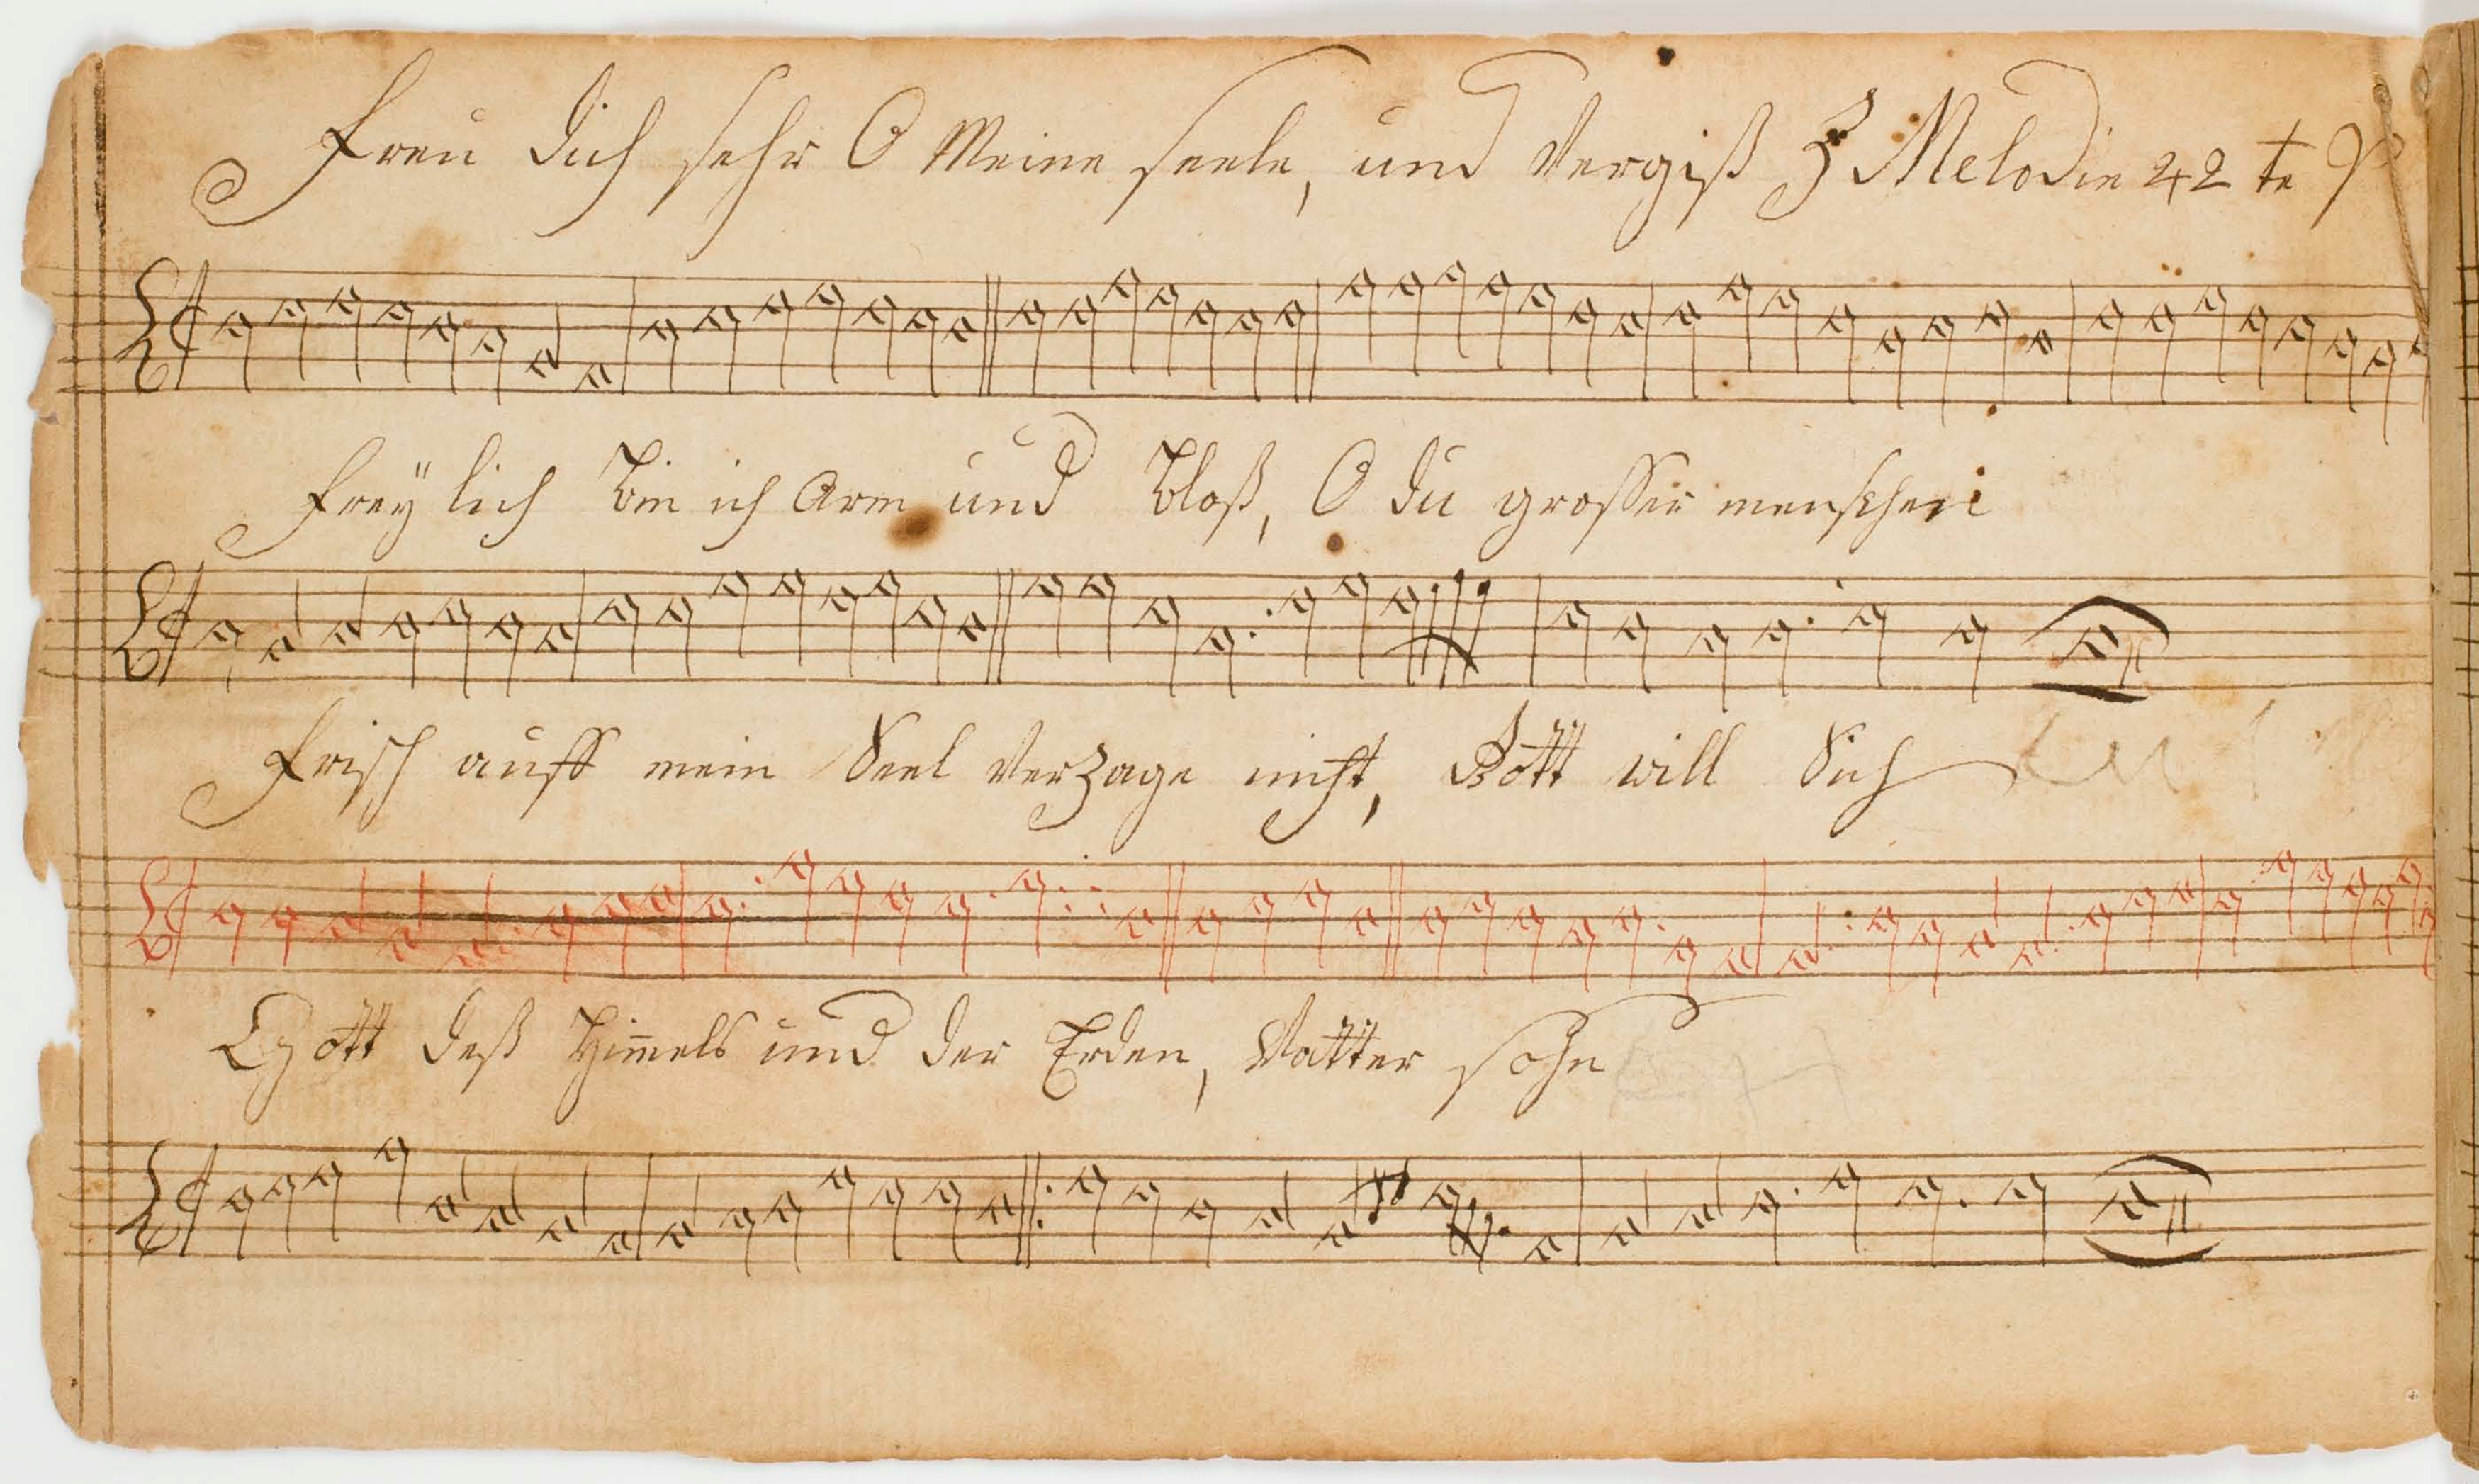 Freu dich sehr O Meine seele, und Vergiß Melodie 42 te
Freÿlich bin ich Arm und bloß, O du grosser menschen
Frisch auff mein Seel Verzage nicht, Gott will Sich
Gott deß Him̅els und der Erden, Vatter sohn